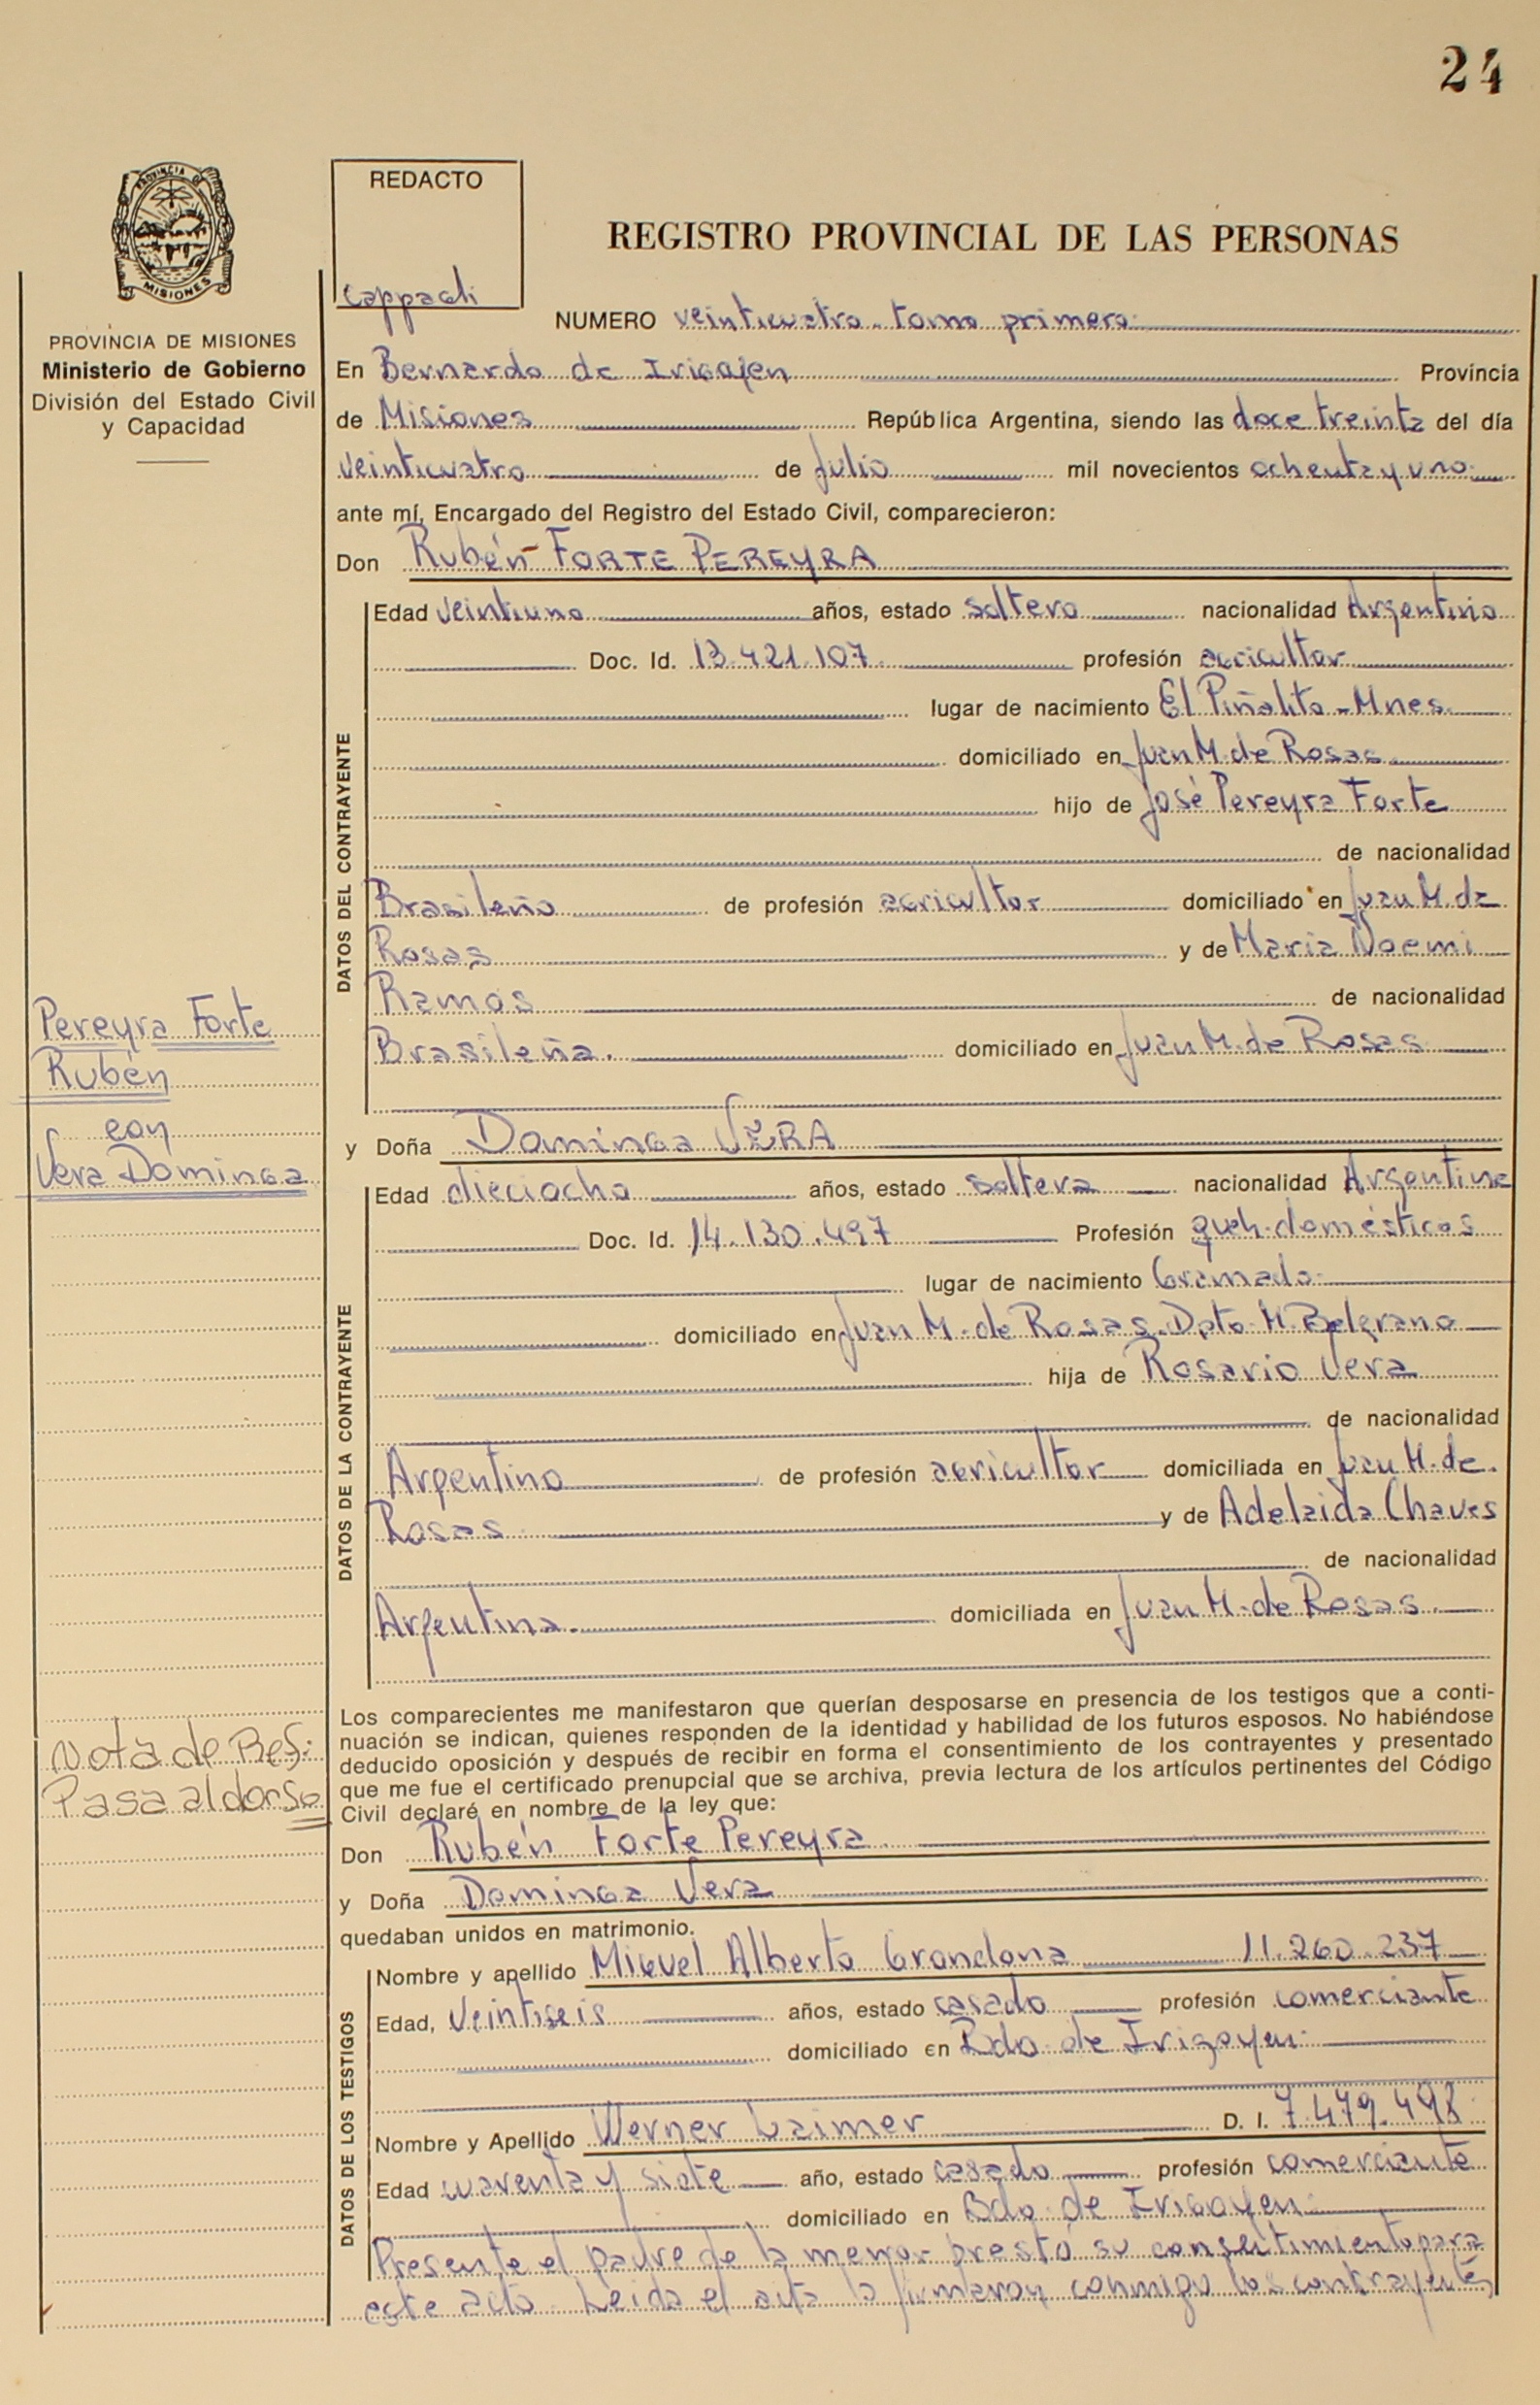 24
PROVINCIA DE
MISIONES
PROVINCIA DE MISIONES
Ministerio de Gobierno
División del Estado Civil
y Capacidad
REDACTO
REGISTRO PROVINCIAL DE LAS PERSONAS
NUMERO veinticuatro - tomo primero.
En Bernardo de Irigoyen Provincia
de Misiones República Argentina, siendo las doce treinta del día
veinticuatro de Julio mil novecientos ochenta y uno
ante mí, Encargado del Registro del Estado Civil, comparecieron:
Don Rubén FORTE PEREYRA
DATOS DEL CONTRAYENTE
Edad veintiuno años, estado soltero nacionalidad Argentino
Doc. Id. 13.421.107. profesión agricultor
lugar de nacimiento El Piñalito - Mnes.
domiciliado en Juan M. de Rosas
hijo de José Pereyra Forte
de nacionalidad
Brasileño de profesión agricultor domiciliado en Juan M. de
Rosas y de María Noemi
Ramos de nacionalidad
Brasileña. domiciliado en Juan M. de Rosas
Pereyra Forte
Rubén
con
Vera Dominga
y Doña Dominga VERA
DATOS DE LA CONTRAYENTE
Edad dieciocho años, estado soltera nacionalidad Argentina
Doc. Id. 14.130.497 Profesión queh. domésticos
lugar de nacimiento Gramado.
domiciliado en Juan M. de Rosas. Dpto. M. Belgrano
hija de Rosario Vera
de nacionalidad
Argentino de profesión agricultor domiciliada en Juan M. de
Rosas y de Adelaida Chaves
de nacionalidad
Argentina. domiciliada en Juan M. de Rosas.
Nota de Ref:
Pasa al dorso
Los comparecientes me manifestaron que querían desposarse en presencia de los testigos que a conti-
nuación se indican, quienes responden de la identidad y habilidad de los futuros esposos. No habiéndose
deducido oposición y después de recibir en forma el consentimiento de los contrayentes y presentado
que me fue el certificado prenupcial que se archiva, previa lectura de los artículos pertinentes del Código
Civil declaré en nombre de la ley que:
Don Rubén Forte Pereyra
y Doña Dominga Vera
quedaban unidos en matrimonio.
DATOS DE LOS TESTIGOS
Nombre y apellido Miguel Alberto Grondona 11.260.237
Edad, veintiseis años, estado casado profesión comerciante
domiciliado en Bdo de Irigoyen.
Nombre y Apellido Werner Laimer D. I. 7.479.498
Edad cuarenta y siete año, estado casado profesión comerciante
domiciliado en Bdo. de Irigoyen.
Presente el padre de la menor prestó su consentimiento para
este acto. Leida el acta la firmaron conmigo los contrayentes,